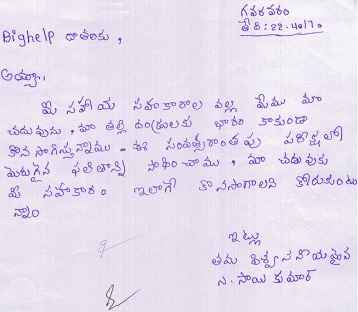 గవరవరం
తేది: 22.10/10
Bighelp దాతలకు,
అయ్యా,
మీ సహాయ సహకారాల వల్ల మేము మా
చదువును, మా తల్లి దండ్రులకు భారం కాకుండా
కొన సాగిస్తున్నాము. ఈ సంవత్సరాంతపు పరీక్షలో
మెరుగైన ఫలితాన్ని సాధించాము, మా చదువుకు
మీ సహకారం ఇలాగే కొనసాగాలని కోరుకుంటు
న్నాం
ఇట్లు
తమ విశ్వసనీయమైన
న. సాయి కుమార్